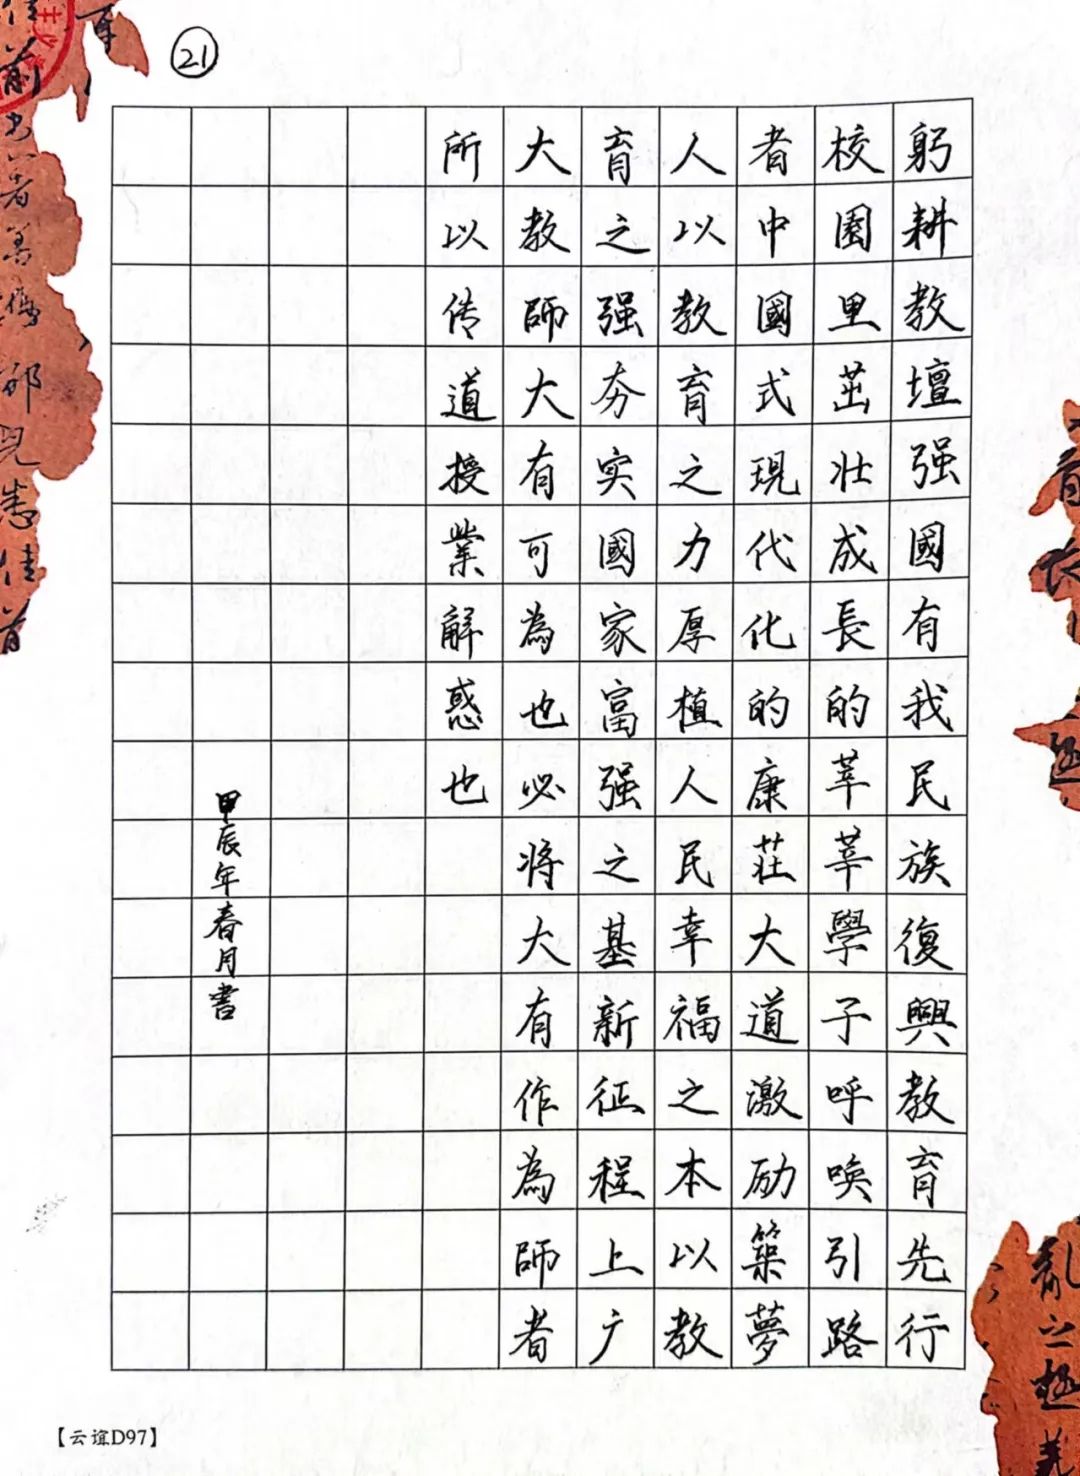 21
躬耕教壇强國有我民族復興教育先行
校園里茁壮成長的莘莘學子呼唤引路
者中國式現代化的康莊大道激励築夢
人以教育之力厚植人民幸福之本以教
育之强夯实國家富强之基新征程上广
大教師大有可為也必将大有作為師者
所以传道授業解惑也
甲辰年春月書
【云谊D97】